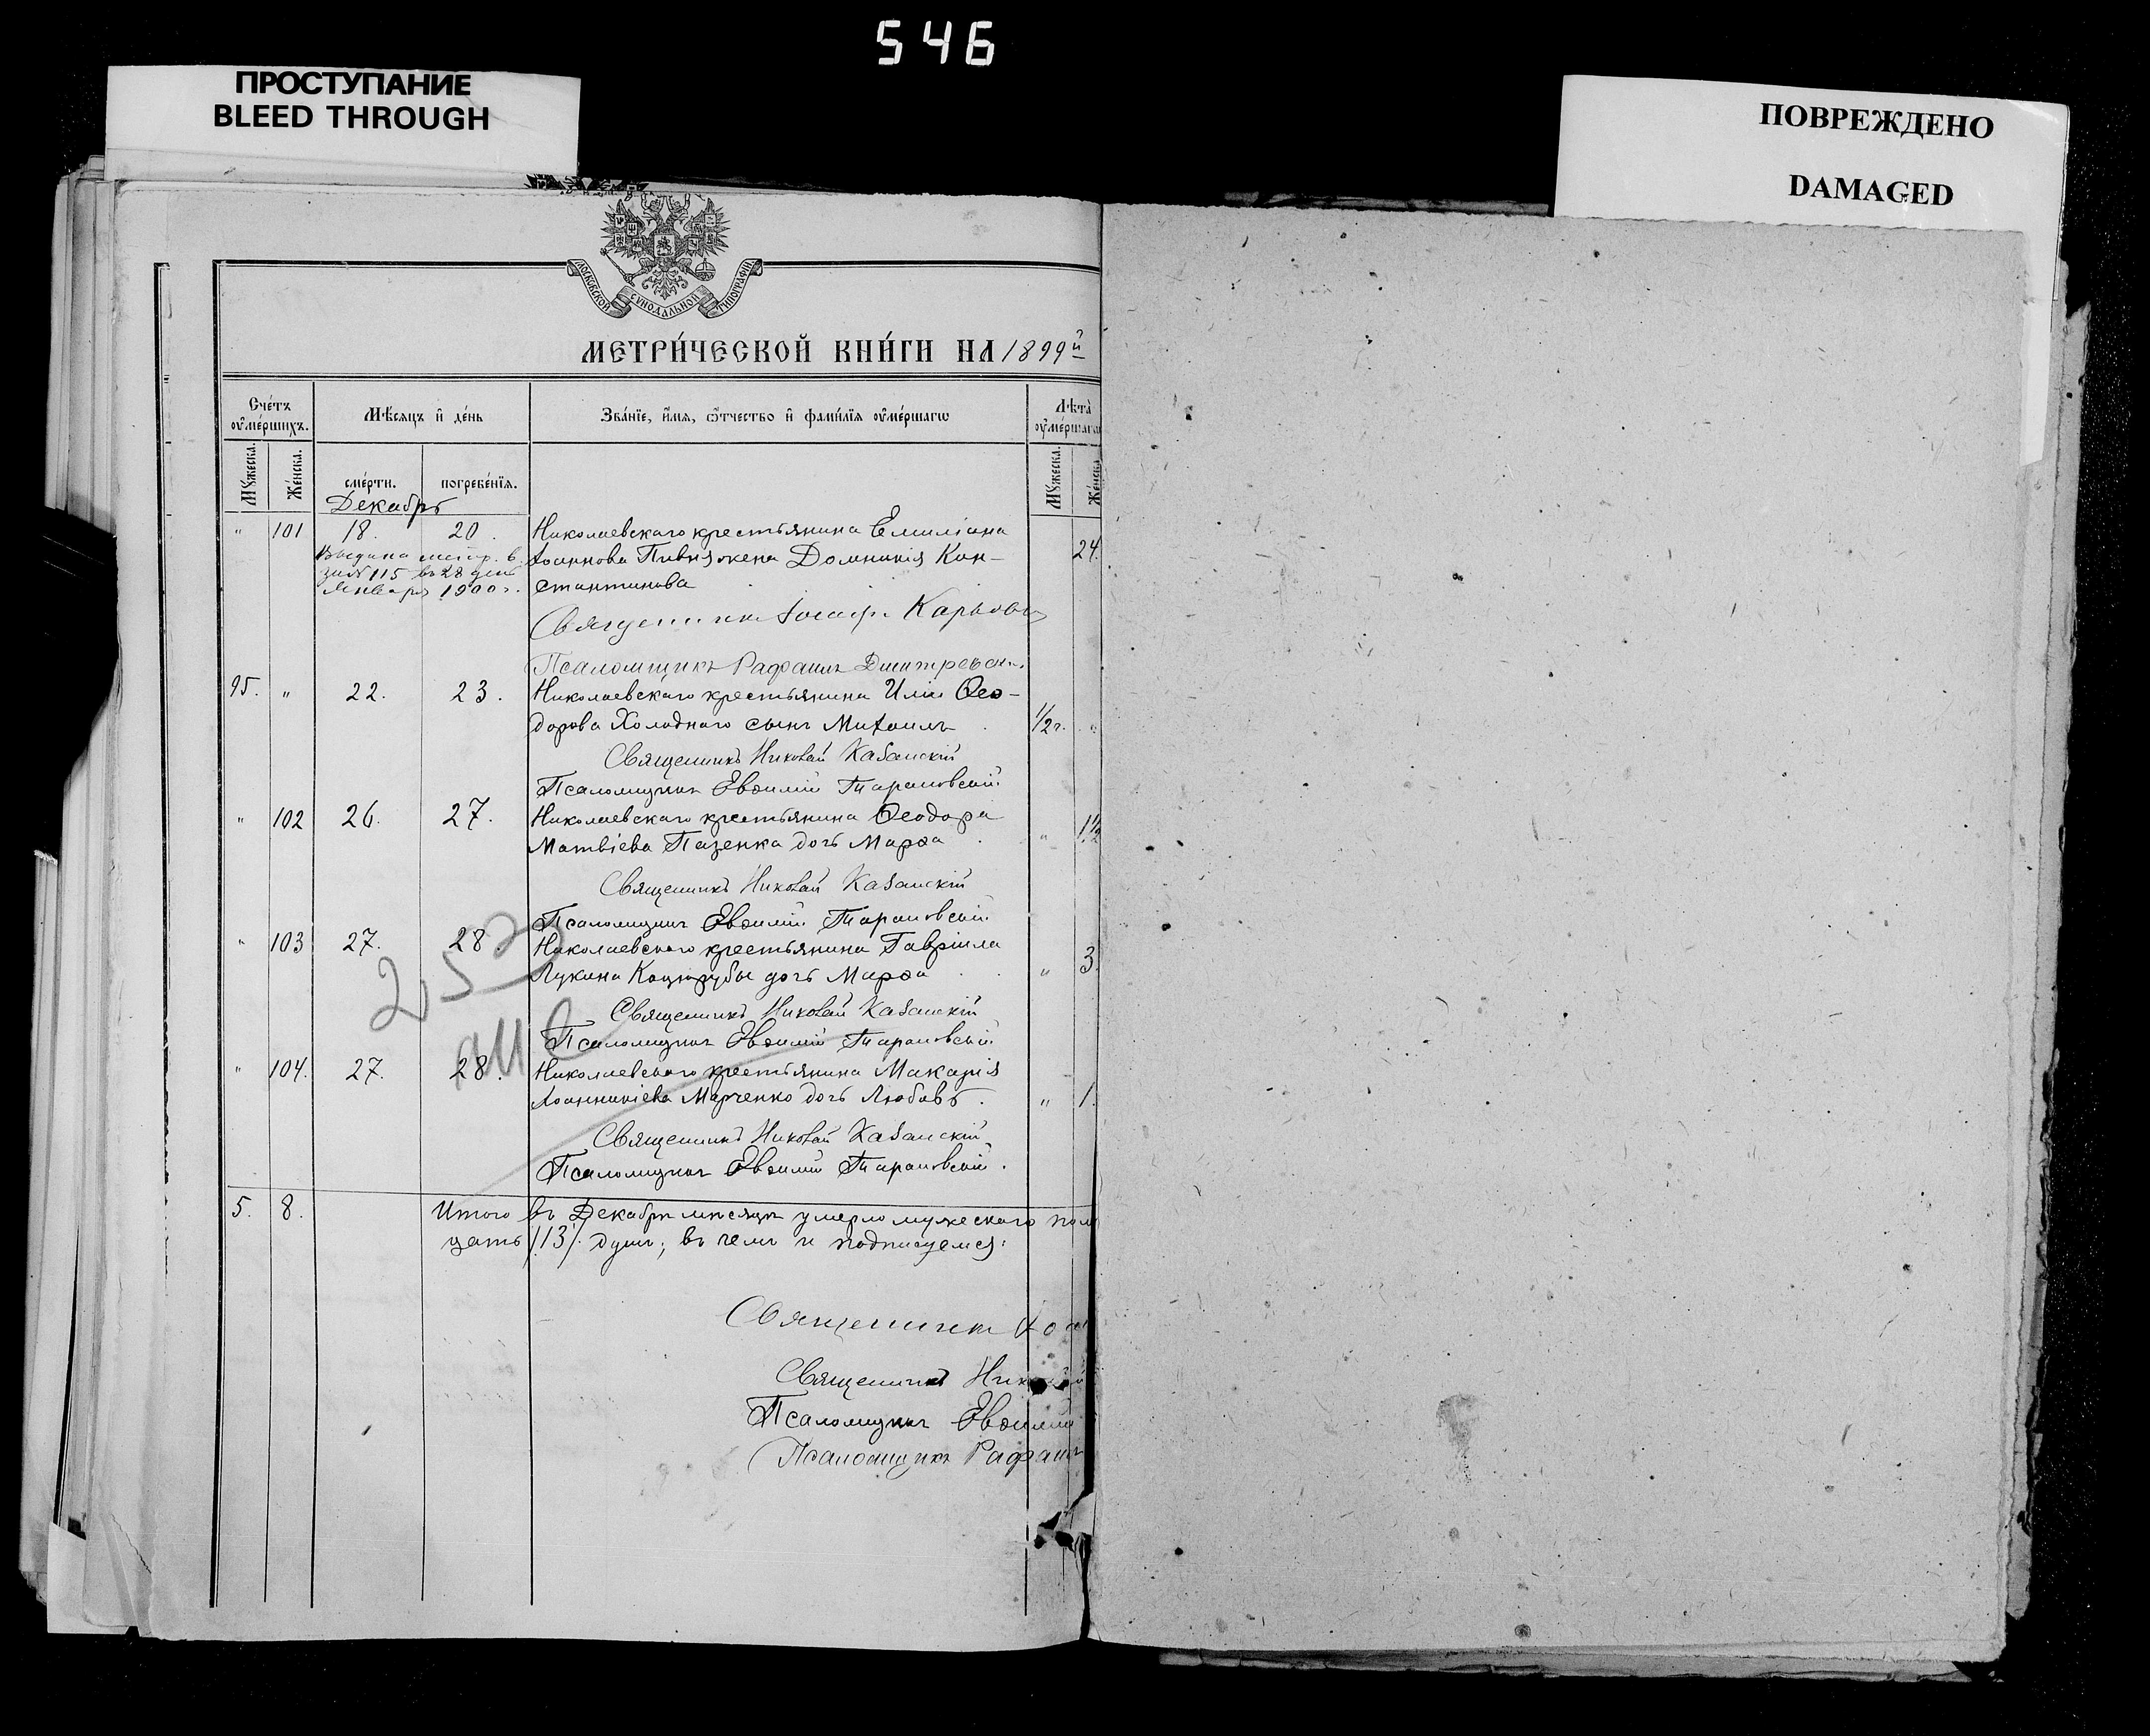 546
ПРОСТУПАНИЕ
BLEED THROUGH
ПОВРЕЖДЕНО
DAMAGED
МОСКОВСКОЙ СѴНОДАЛЬНОЙ ТИПОГРАФІИ
МЕТРИ́ЧЕСКОЙ КНИ́ГИ НА 1899й
Сче́тъ ѹ҆ме́ршихъ.
Мѣ́сяцъ и҆ де́нь
Зва́нїе, и҆́мя, ѻ҆́тчество и҆ фами́лїя ѹ҆ме́ршагѡ
Лѣта̀ ѹ҆ме́ршагѡ
Мꙋ́жеска.
Же́нска.
сме́рти.
погребе́нїя.
Мꙋ́жеска.
Же́нска
Декабрь
" 101 18. 20. Николаевскаго крестьянина Емиліана
Іоаннова Пивня жена Домникія Кон- 24.
стантинова
за № 115 въ 28 день
Января 1900 г.
Священникъ Іосифъ
Псаломщикъ Рафаилъ
95. " 22. 23. Николаевскаго крестьянина Иліи Ѳео-
дорова Холоднаго сынъ Михаилъ 1/2 г. "
Священникъ Николай Казанскій
Псаломщикъ Евѳимій Тарановскій
" 102 26. 27. Николаевскаго крестьянина Ѳеодора
Матвіева Пазенка дочь Марѳа " 1 1/2
Священникъ Николай Казанскій
Псаломщикъ Евѳимій Тарановскій
" 103 27. 28 Николаевскаго крестьянина Гавріила
Лукина Коцюрубы дочь Марѳа " 3.
Священникъ Николай Казанскій
Псаломщикъ Евѳимій Тарановскій
" 104. 27. 28. Николаевскаго крестьянина Макарія
Іоанникіева Марченко дочь Любовь. " 1.
Священникъ Николай Казанскій
Псаломщикъ Евѳимій Тарановскій.
5. 8. Итого въ Декабрѣ мѣсяцѣ умерло мужескаго пол
цать /13/ душъ; въ чемъ и подписуемся:
Священникъ Іос
Священникъ Николай
Псаломщикъ Евѳимій
Псаломщикъ Рафаилъ